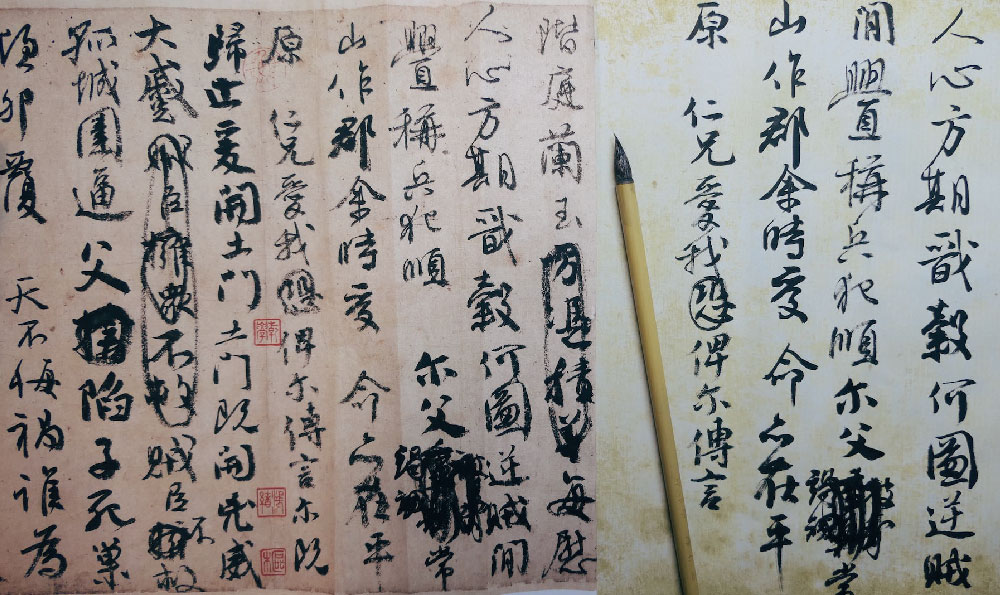 人心方期戩穀何圖逆賊
閒釁稱兵犯順尓父竭誠常
山作郡余時受命亦在平
原仁兄愛我俾尓傳言
階庭蘭玉方憑積善每慰
人心方期戩穀何圖逆賊閒
釁稱兵犯順尓父竭誠常
山作郡余時受命亦在平
原仁兄愛我恐俾尓傳言尓既
歸止爰開土門土門既開兇威
大蹙賊臣擁衆不救賊臣不救
孤城圍逼父陷子死巢
傾卵覆天不悔禍誰為